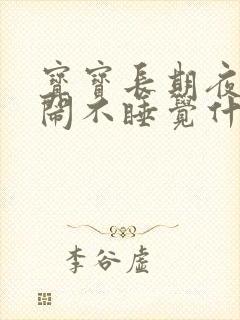 寶寶長期夜
鬧不睡覺什
李谷虛